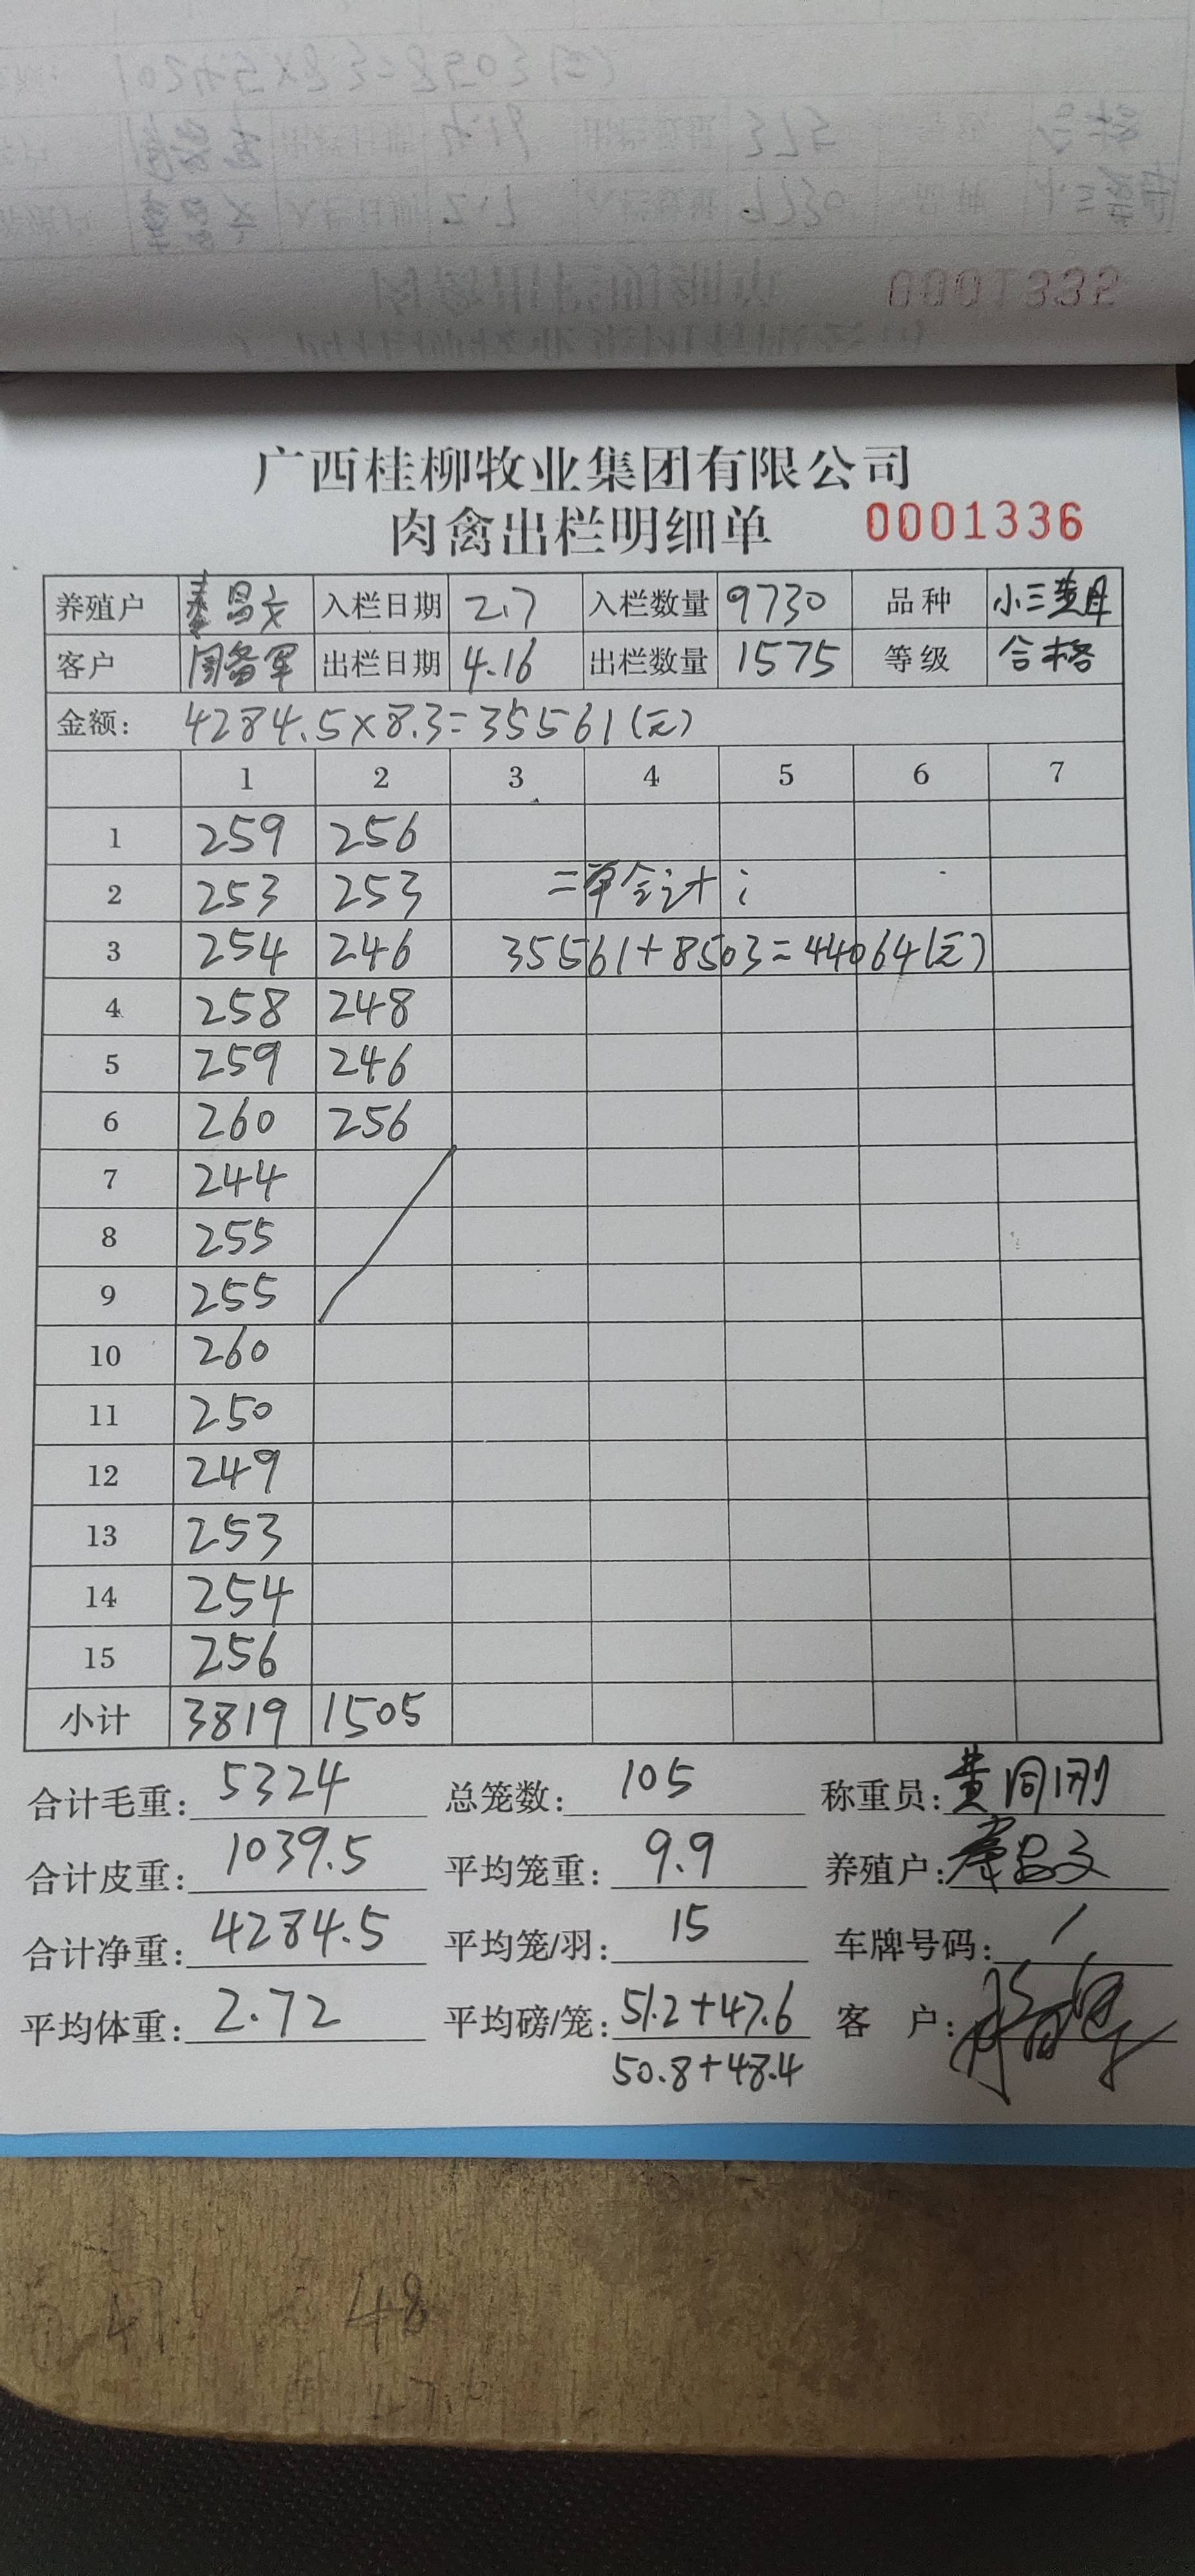 0001332
广西桂柳牧业集团有限公司
肉禽出栏明细单 0001336
养殖户 秦昌文 入栏日期 2.7 入栏数量 9730 品种 小三黄母
客户 周备军 出栏日期 4.16 出栏数量 1575 等级 合格
金额: 4284.5×8.3=35561(元)
1 2 3 4 5 6 7
1 259 256
2 253 253 二单合计:
3 254 246 35561+8503=44064(元)
4 258 248
5 259 246
6 260 256
7 244
8 255
9 255
10 260
11 250
12 249
13 253
14 254
15 256
小计 3819 1505
合计毛重: 5324 总笼数: 105 称重员: 黄同刚
合计皮重: 1039.5 平均笼重: 9.9 养殖户: 秦昌文
合计净重: 4284.5 平均笼/羽: 15 车牌号码: /
平均体重: 2.72 平均磅/笼: 51.2+47.6 客 户:
50.8+48.4
48